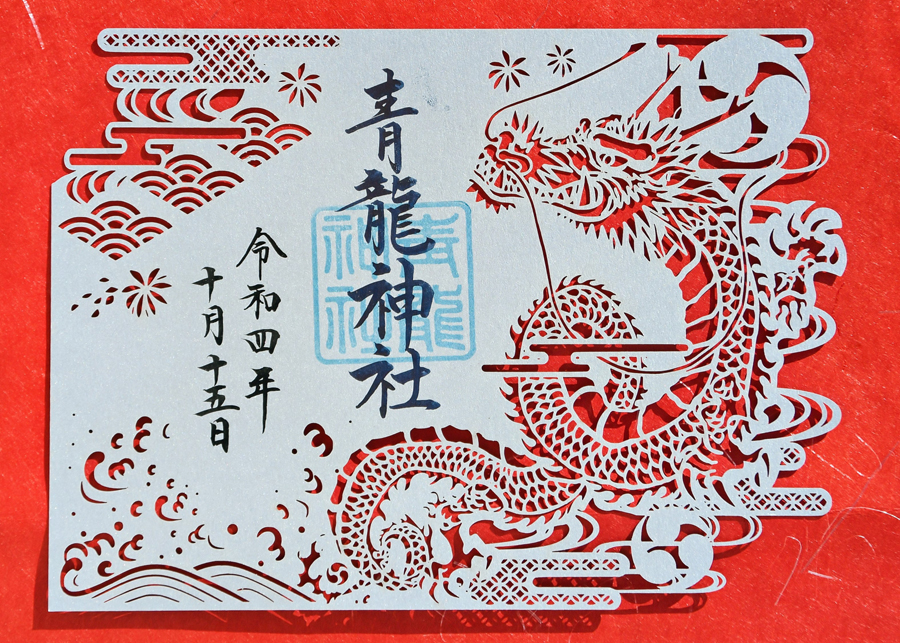 青龍神社
青龍
神社
令和四年
十月十五日